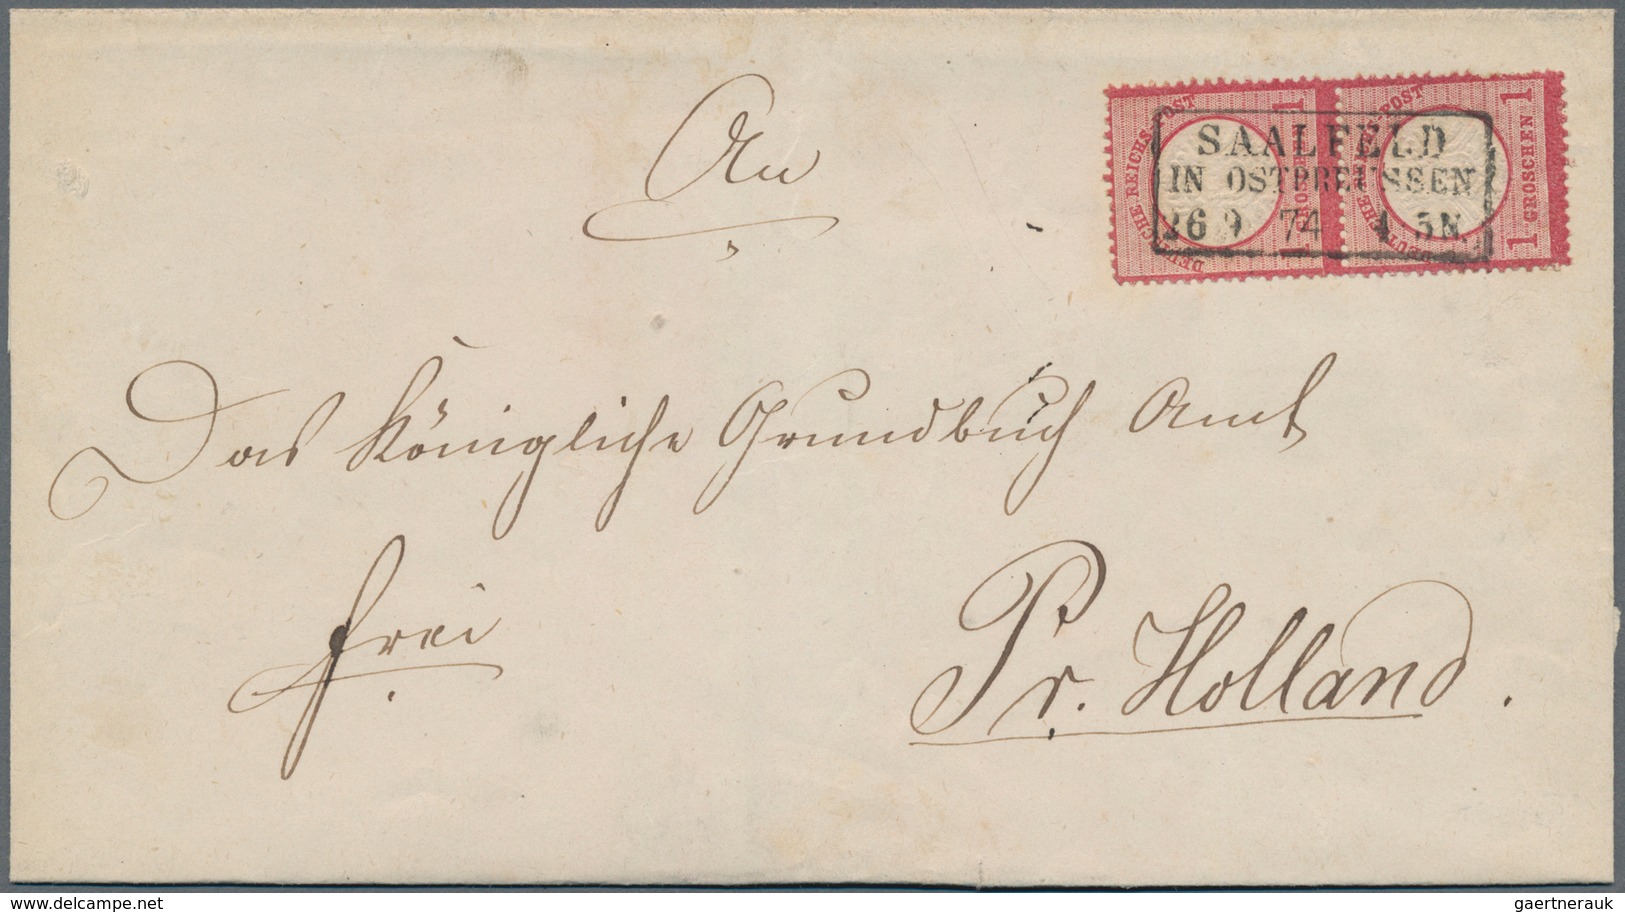 An
DEUTSCHE REICHS-POST
1 GROSCHEN 1
DEUTSCHE REICHS-POST
1 GROSCHEN 1
SAALFELD
IN OSTPREUSSEN
26 9 74 4-5N.
Das Königliche Grundbuch Amt
frei
Pr. Holland.
delcampe.net
gaertnerauk